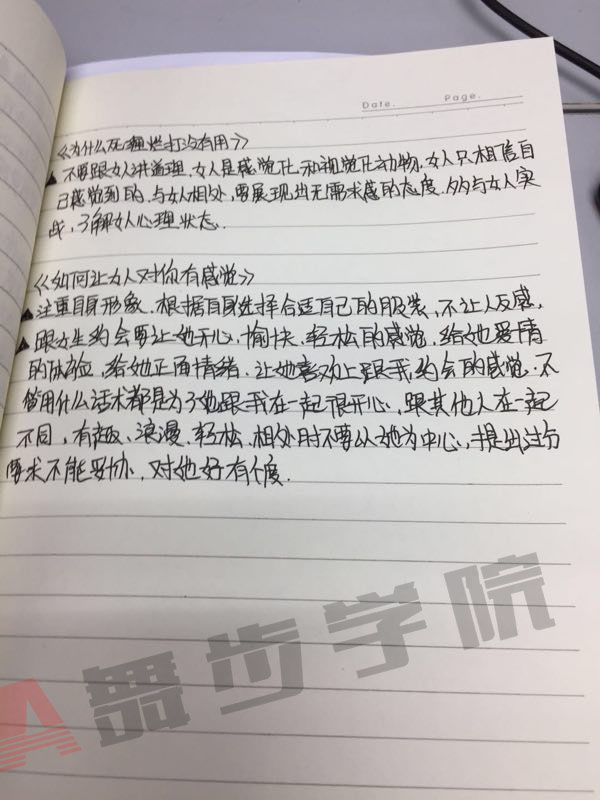 Date. Page.
《为什么死缠烂打没有用》
▲不要跟女人讲道理,女人是感觉化和视觉化动物.女人只相信自
己感觉到的.与女人相处,要展现出无需求感的态度.多与女人实
战,了解女人心理状态.
《如何让女人对你有感觉》
▲注重自身形象.根据自身选择合适自己的服装,不让人反感,
▲跟女生约会要让她开心,愉快.轻松的感觉.给她爱情
的体验,给她正面情绪.让她喜欢上跟我约会的感觉.不
管用什么话术都是为了她跟我在一起很开心,跟其他人在一起
不同,有趣、浪漫、轻松.相处时不要以她为中心,提出过分
要求不能妥协,对她好有个度.
舞步学院